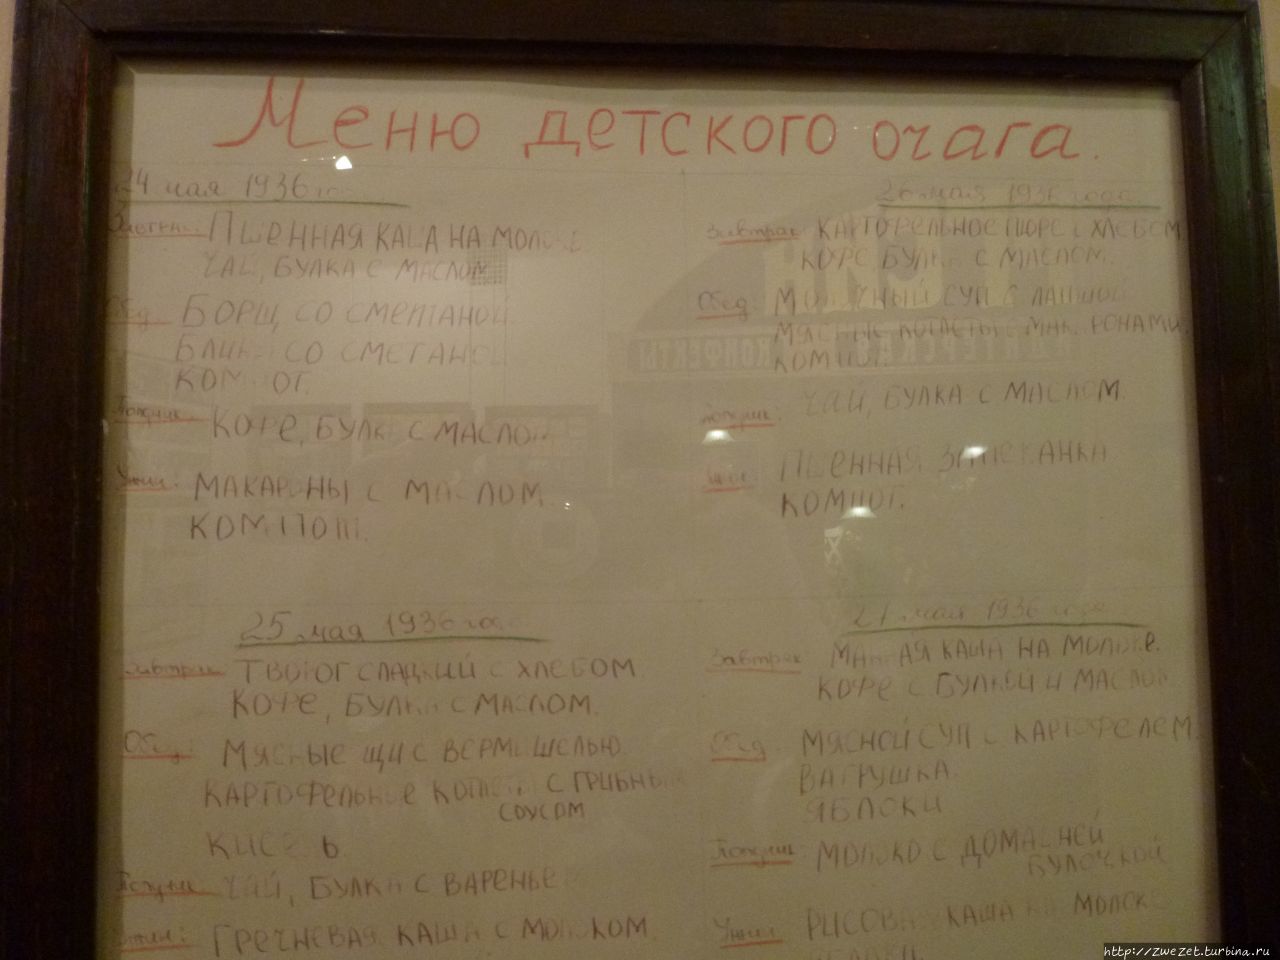 Меню детского очага.
24 мая 1936 года
Завтрак: Пшенная каша на молоке
чай, булка с маслом
Обед: Борщ со сметаной
Блины со сметаной
компот.
Полдник: Кофе, булка с маслом
Ужин: макароны с маслом.
компот.
25 мая 1936 года
Завтрак: творог сладкий с хлебом.
кофе, булка с маслом.
Обед: мясные щи с вермишелью.
картофельные котлеты с грибным
соусом
кисель
Полдник: чай, булка с вареньем
Ужин: Гречневая каша с молоком.
26 мая 1936 года
Завтрак: картофельное пюре с хлебом.
кофе, булка с маслом.
Обед: молочный суп с лапшой
мясные котлеты с макаронами.
компот.
Полдник: чай, булка с маслом.
Ужин: Пшенная запеканка
компот.
27 мая 1936 года
Завтрак: манная каша на молоке.
кофе с булкой и маслом
Обед: мясной суп с картофелем.
ватрушка.
яблоки
Полдник: молоко с домашней
булочкой
Ужин: рисовая каша на молоке
КОНФЕКТЫ
http://zwezet.turbina.ru